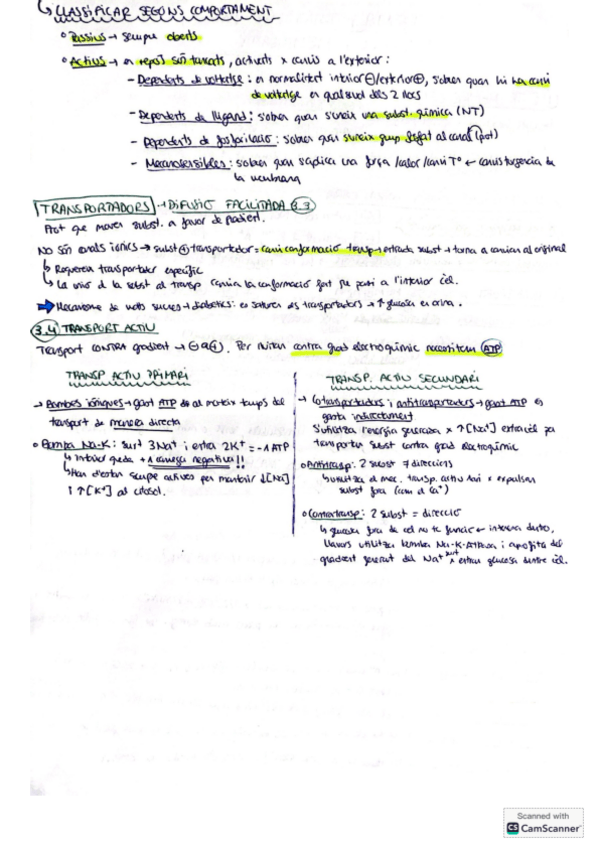 ↳ CLASSIFICAR SEGONS COMPORTAMENT
° Passius → sempre oberts
° Actius → en repos] són tancats, activats x canvis a l'exterior:
- Dependents de voltatge: en normalitat interior⊖/exterior⊕, s'obren quan hi ha canvi
de voltatge en qualsevol dels 2 llocs
- Dependents de lligand: s'obren quan s'uneix una subst. química (NT)
- Dependents de fosforilació: s'obren quan s'uneix grup fosfat al canal (prot)
- Mecanosensibles: s'obren quan s'aplica una força /calor/canvi Tº ← canvis turgencia de
la membrana
TRANSPORTADORS → DIFUSIÓ FACILITADA 3.3
Prot que mouen subst. a favor de gradient.
NO són canals iònics → subst ⊕ transportador = canvi conformació transp → entrada subst → torna a canviar al original
↳ Requereix transportador específic
↳ La unió de la subst al transp canvia la conformació fent que passi a l'interior cèl.
Mecanisme de molts sucres → diabetics: es saturen els transportadors → ↑ glucosa en orina.
3.4 TRANSPORT ACTIU
Transport CONTRA gradient → ⊖ a ⊕. Per anar contra grad electroquímic necessitem ATP
TRANSP ACTIU PRIMARI
→ Bombes iòniques → gast ATP al mateix temps del
transport de manera directa
° Bomba Na-K: surt 3Na⁺ i entra 2K⁺ = -1 ATP
↳ interior queda +1 carrega negativa!!
↳ Han d'estar sempre actives per mantenir ↓[Na]
i ↑[K⁺] al citosol.
TRANSP. ACTIU SECUNDARI
→ Cotransportadors i antitransportadors → gast ATP es
gasta indirectament
S'utilitza l'energia generada x ↑[Na⁺] extracèl per
transportar subst contra grad electroquímic
° Antitransp: 2 subst ≠ direccions
↳ utilitza el mec. transp. actiu 1ari x expulsar
subst fora (com el Ca⁺)
° Cotransp: 2 subst = direcció
↳ glucosa fora de cel no te funció ← interessa dintre,
llavors utilitza bomba Na-K-ATPasa i aprofita del
gradient generat del Na⁺ surt x entrar glucosa dintre cèl.
Scanned with
CS CamScanner